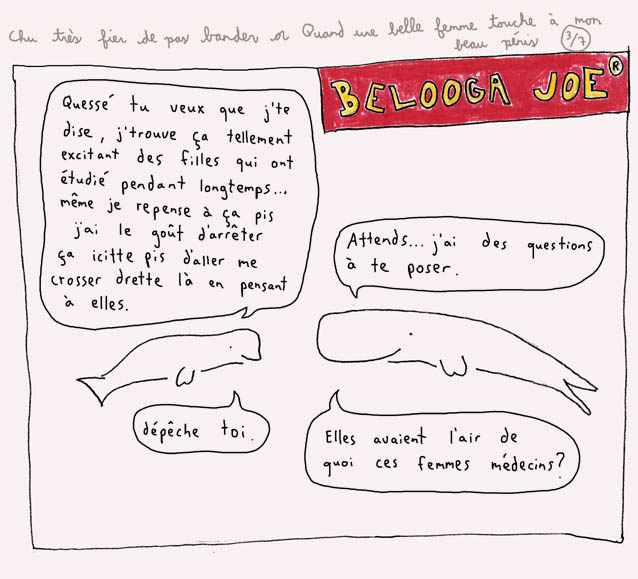 Chu très fier de pas bander or Quand une belle femme touche à mon
beau pénis 3/7
BELOOGA JOE®
Quessé tu veux que j'te
dise, j'trouve ça tellement
excitant des filles qui ont
étudié pendant longtemps...
même je repense à ça pis
j'ai le goût d'arrêter
ça icitte pis d'aller me
crosser drette là en pensant
à elles.
Attends... j'ai des questions
à te poser.
dépêche toi.
Elles avaient l'air de
quoi ces femmes médecins?